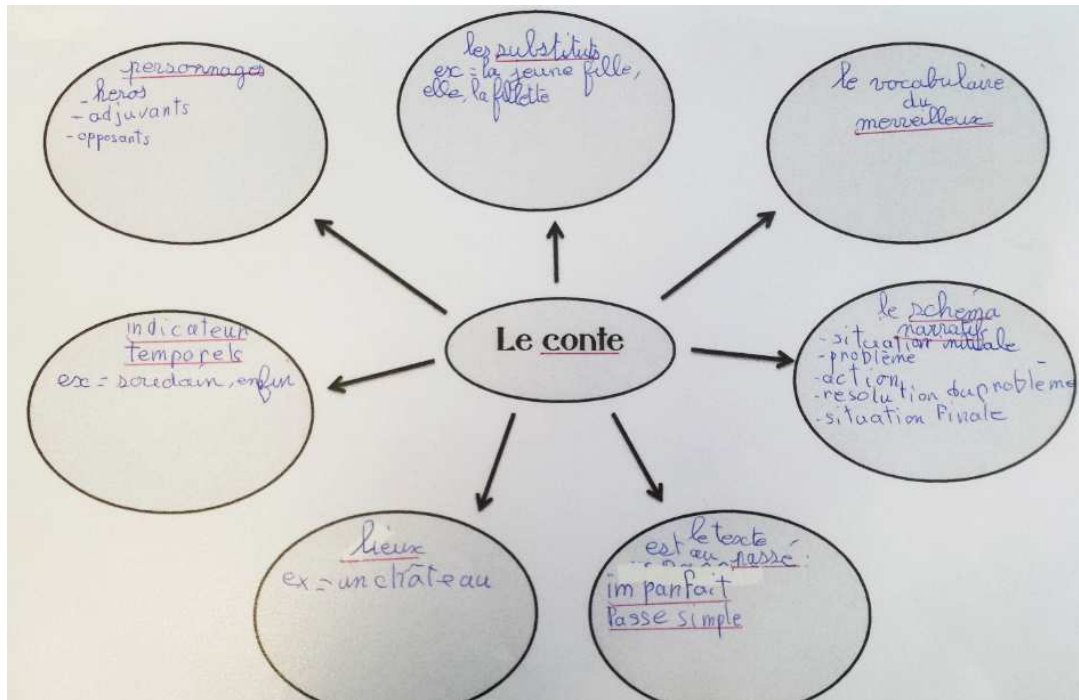 personnages
- héros
- adjuvants
- opposants
les substituts
ex = la jeune fille,
elle, la fillette
le vocabulaire
du
merveilleux
indicateur
temporels
ex = soudain, enfin
Le conte
le schéma
narratif
- situation initiale
- problème
- action
- resolution du problème
- situation Finale
lieux
ex = un château
le texte
est au passé :
imparfait
Passe simple